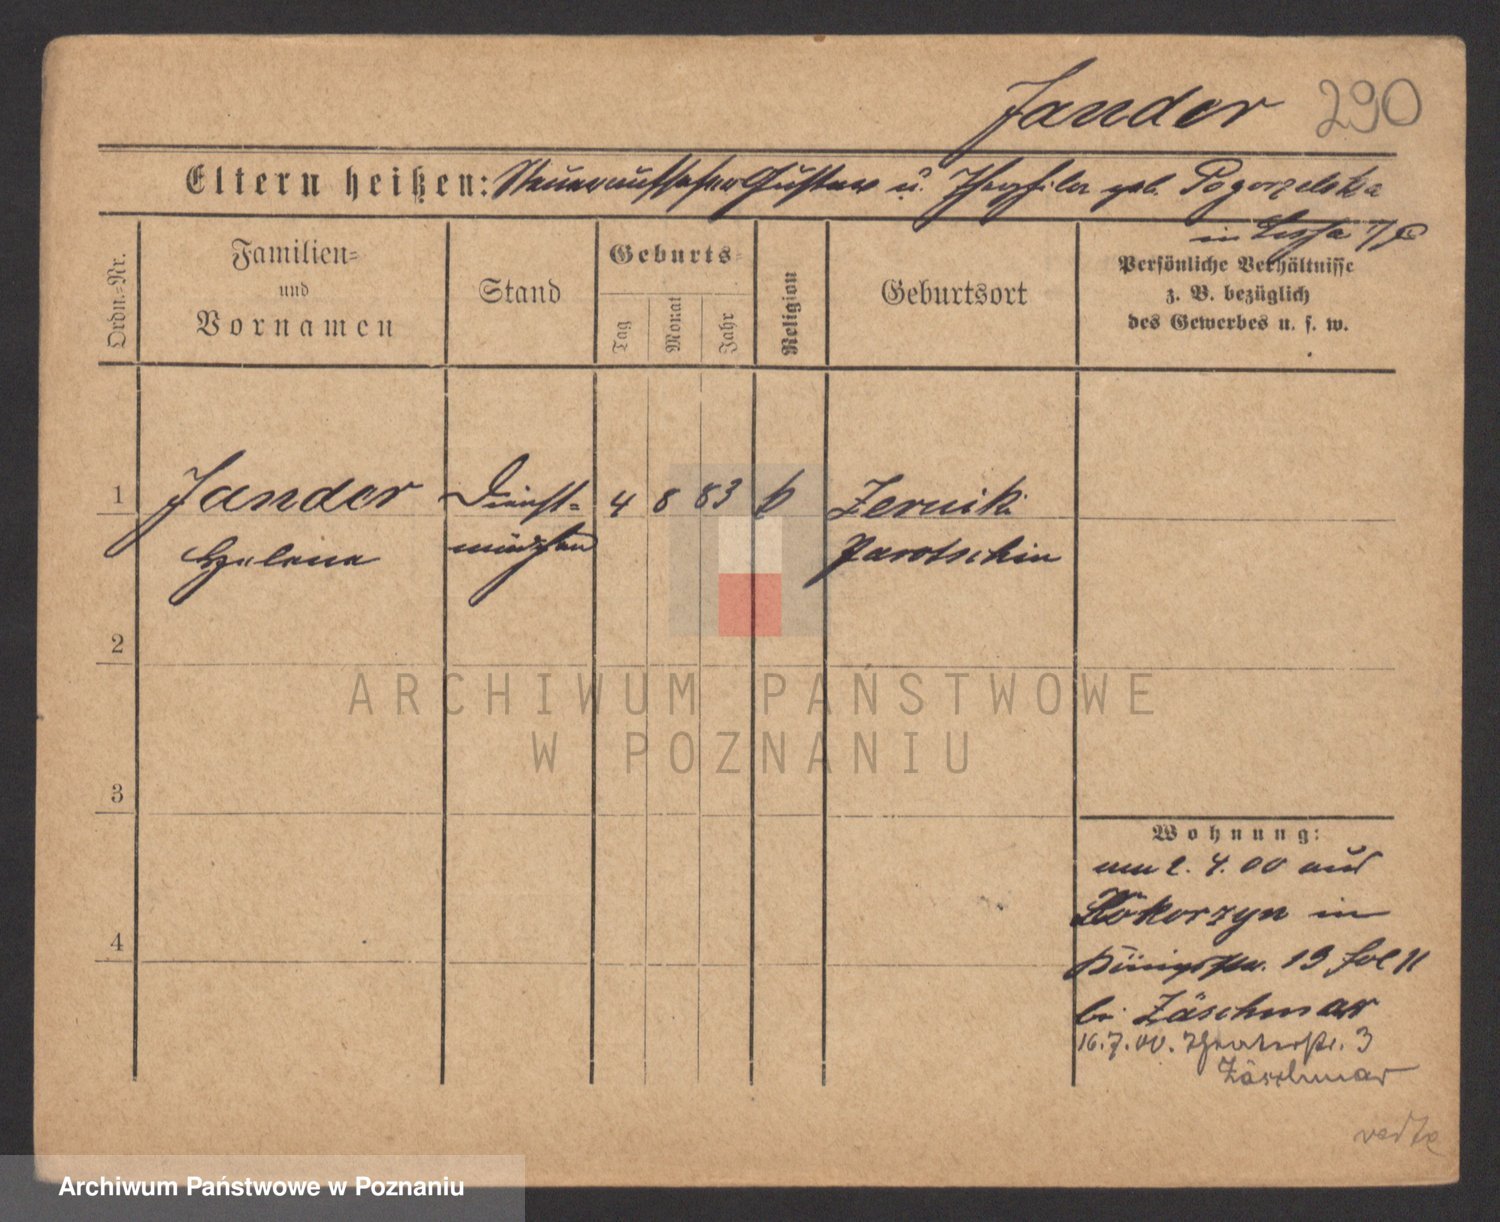 Jander 290
Eltern heißen: Steueraufseher Gustav u. geb. Pogorzelska
in Lissa i/P
Ordn.=Nr.
Familien=
und
Vornamen
Stand
Geburts=
Tag
Monat
Jahr
Religion
Geburtsort
Persönliche Verhältnisse
z. B. bezüglich
des Gewerbes u. s. w.
1 Jander Dienst= 4 8 83 k Zernik
Helene mädchen Jarotschin
2
3
4
Wohnung:
am 2. 4. 00 aus
Kokorzyn in
Königstr. 19 fol II
bei Zäschmar
16.7.00. Theaterstr. 3
Zäschmar
ARCHIWUM PAŃSTWOWE
W POZNANIU
Archiwum Państwowe w Poznaniu